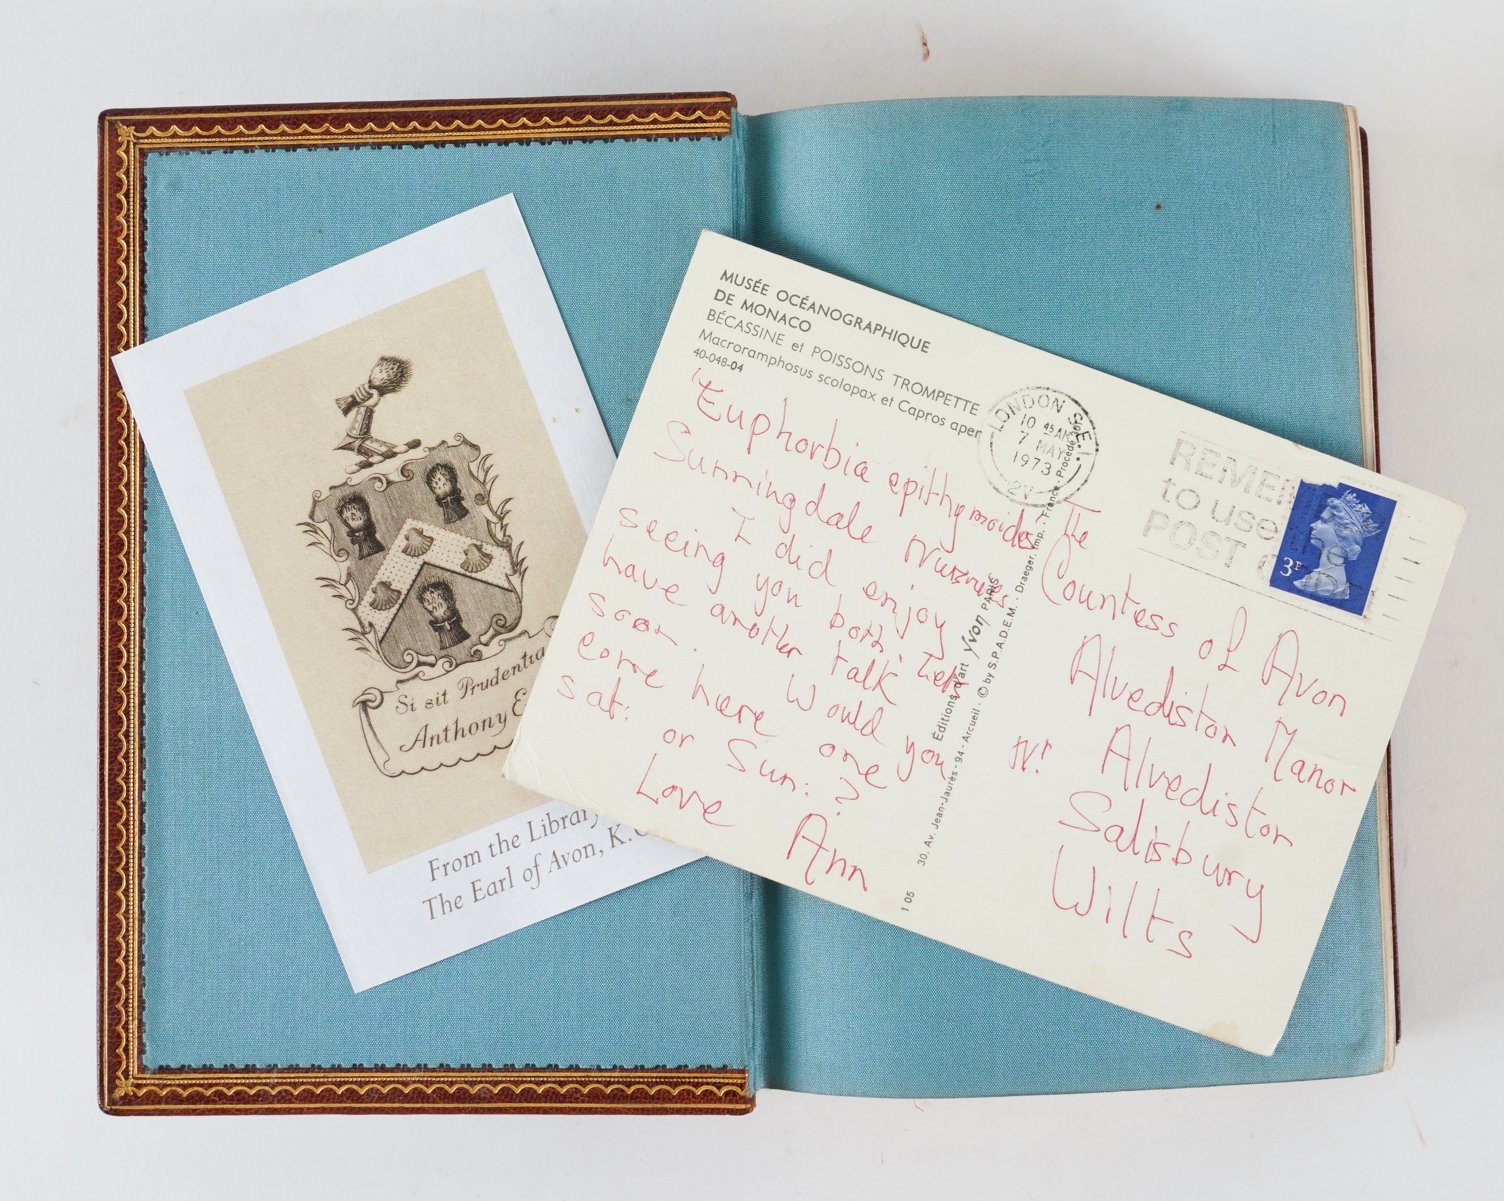 Si sit Prudentia
Anthony E
From the Library
The Earl of Avon, K.
MUSÉE OCÉANOGRAPHIQUE
DE MONACO
BÉCASSINE et POISSONS TROMPETTE
Macroramphosus scolopax et Capros aper
40-048-04
'Euphorbia epithymoides'
Sunningdale Nurseries
I did enjoy
seeing you both. Let's
have another talk
soon. Would you
come here one
sat:
or Sun: ?
Love Ann
Éditions d'art Yvon PARIS
30, Av. Jean-Jaurès - 94 - Arcueil - © by S.P.A.D.E.M. - Draeger, Imp. - France - Procédé
1 05
LONDON S.E.1.
10 45 AM
7 MAY
1973
2V
REME
to use
POST
3P
The
Countess of Avon
Alvediston Manor
Nr Alvediston
Salisbury
Wilts